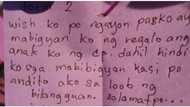 2
wish ko po ngayon pasko ay
mabigyan ko ng regalo ang
anak ko ng cp. dahil hindi
ko sya mabibigyan kasi po
andito ako sa loob ng
bilangguan. salamat po.